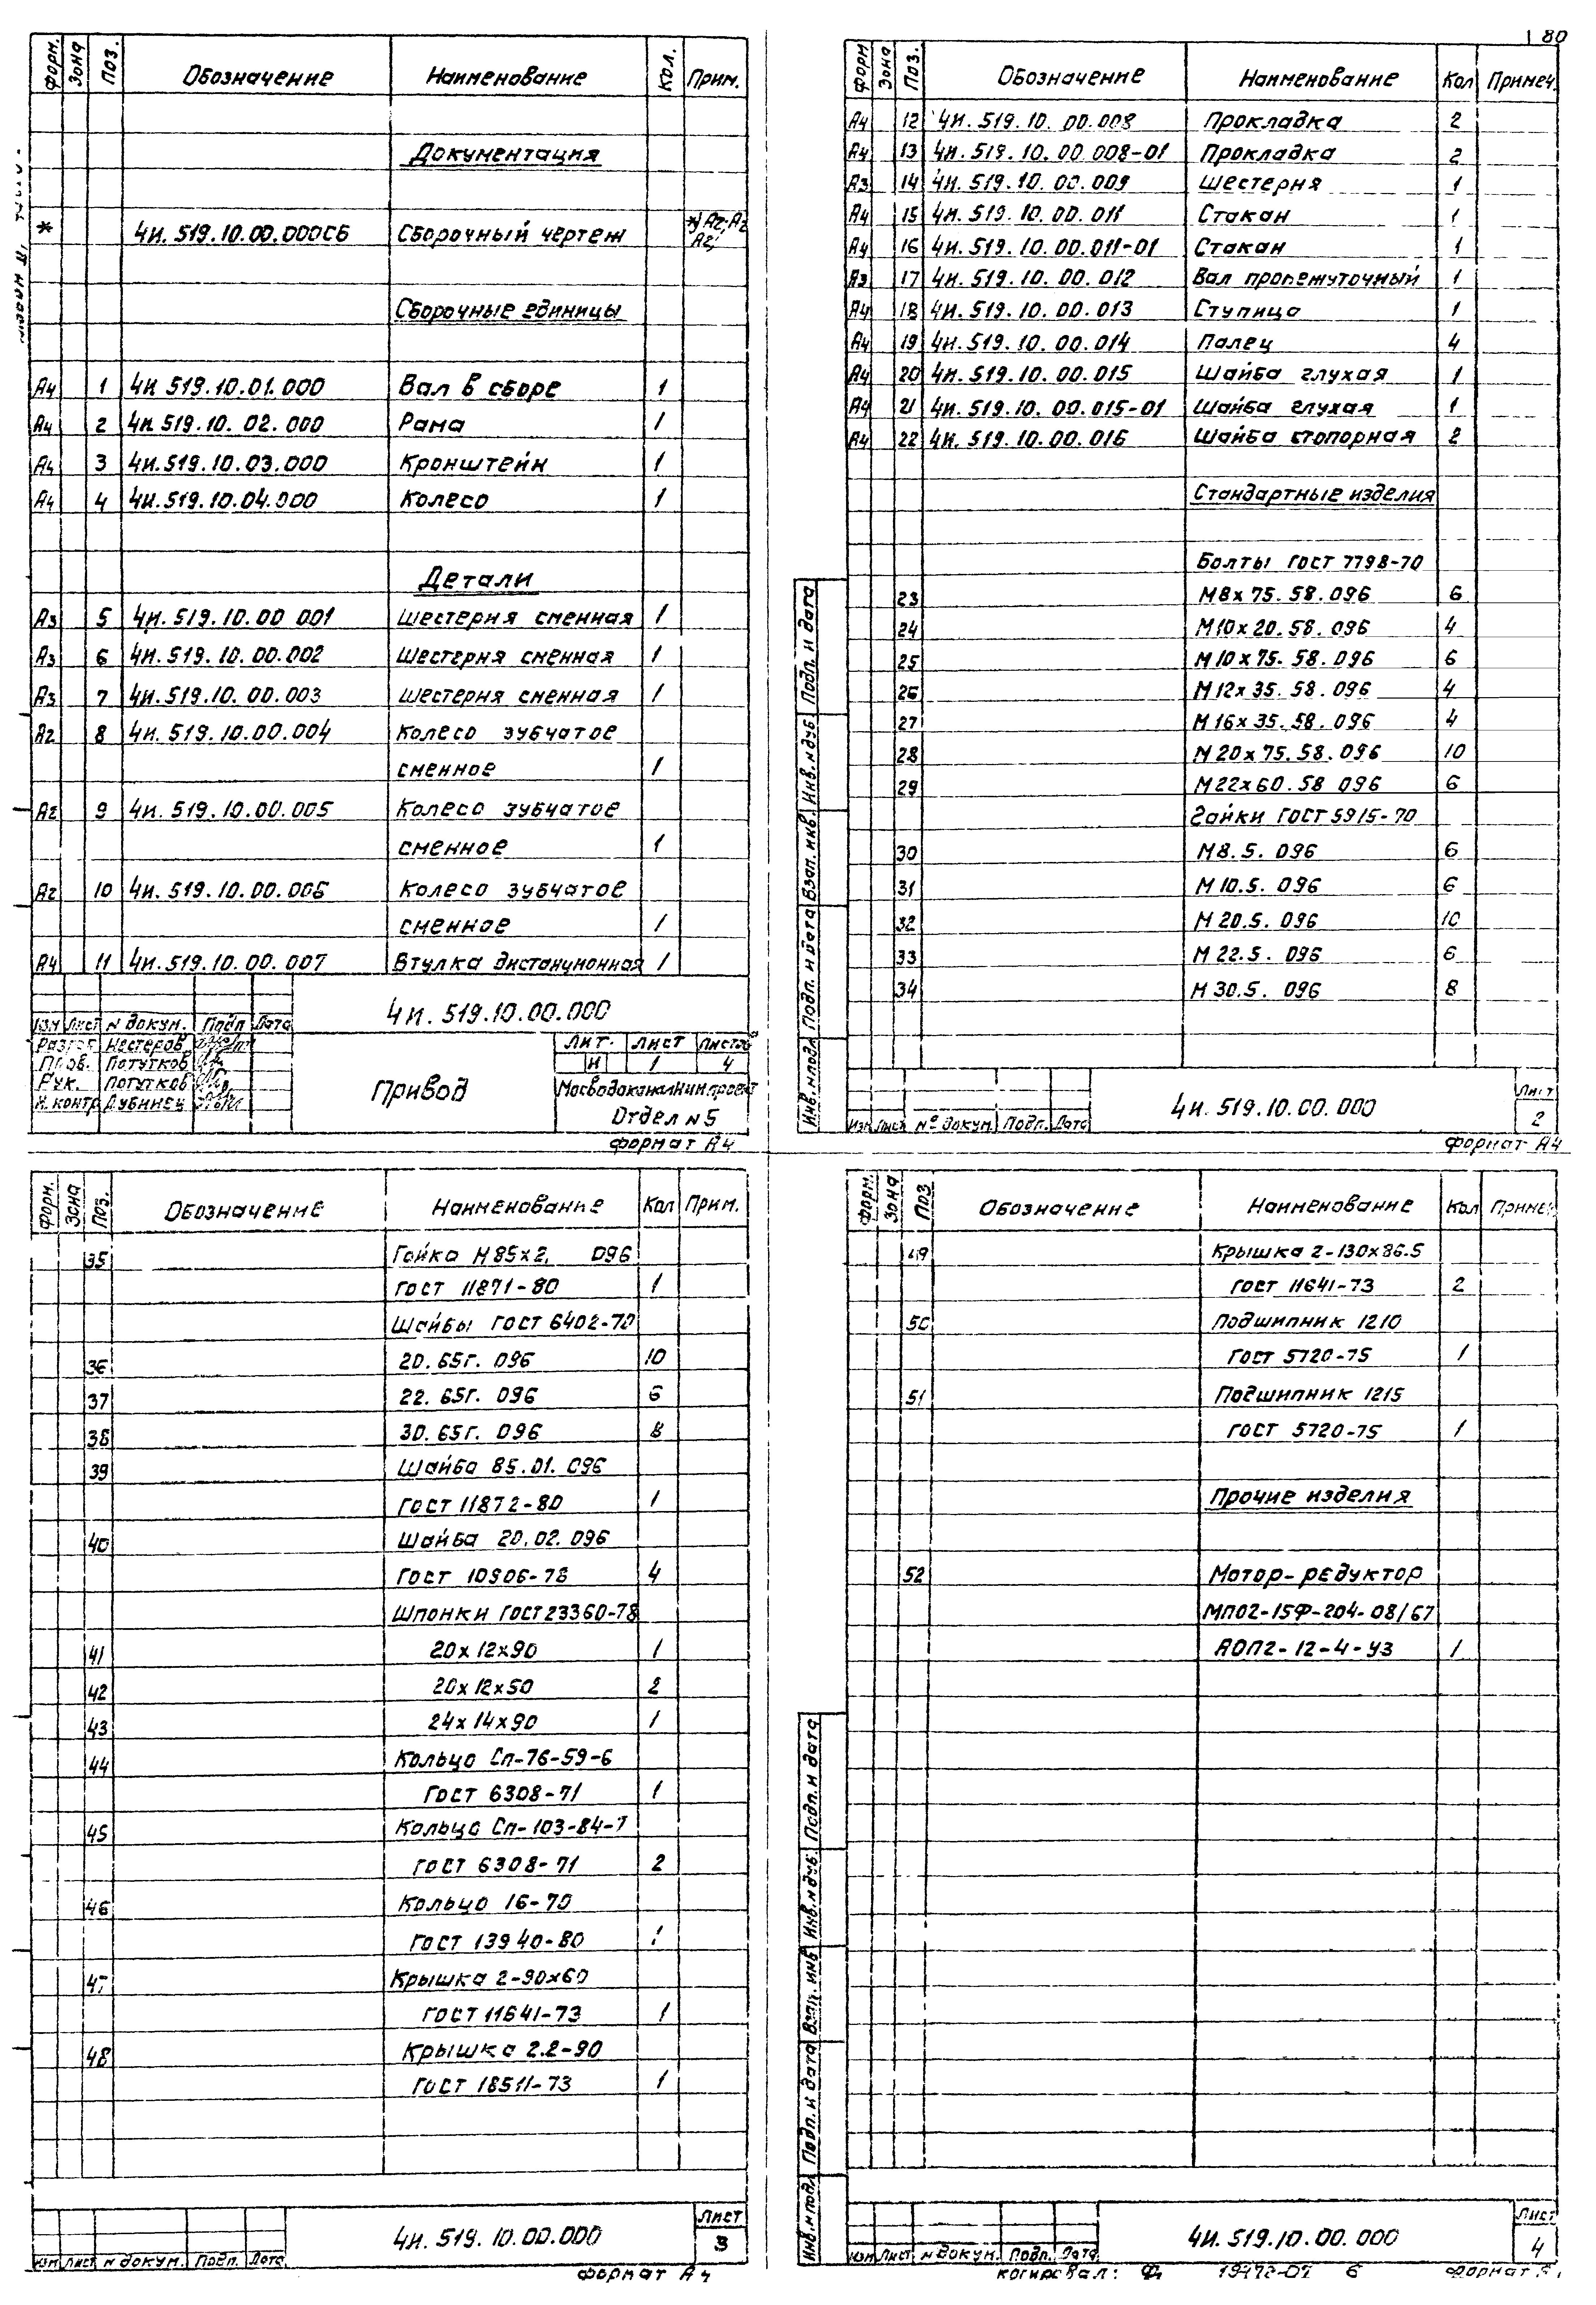 80
Форм. Зона Поз. Обозначение Наименование Кол. Прим.
Документация
* 4И.519.10.00.000СБ Сборочный чертеж *) А2; А2
А2;
Сборочные единицы
А4 1 4И.519.10.01.000 Вал в сборе 1
А4 2 4И.519.10.02.000 Рама 1
А4 3 4И.519.10.03.000 Кронштейн 1
А4 4 4И.519.10.04.000 Колесо 1
Детали
А3 5 4И.519.10.00 001 Шестерня сменная 1
А3 6 4И.519.10.00.002 Шестерня сменная 1
А3 7 4И.519.10.00.003 Шестерня сменная 1
А2 8 4И.519.10.00.004 Колесо зубчатое
сменное 1
А2 9 4И.519.10.00.005 Колесо зубчатое
сменное 1
А2 10 4И.519.10.00.006 Колесо зубчатое
сменное 1
А4 11 4И.519.10.00.007 Втулка дистанционная 1
4И.519.10.00.000
Изм Лист N докум. Подп Дата
Разраб Нестеров
Пров. Потутков
Рук. Потутков
Н.контр Дубинец
Привод
Лит. Лист Листов
И 1 4
МосводоканалНИИпроект
Отдел N5
Формат А4
Форм Зона Поз. Обозначение Наименование Кол Примеч.
А4 12 4И.519.10.00.008 Прокладка 2
А4 13 4И.519.10.00 008-01 Прокладка 2
А3 14 4И.519.10.00.009 Шестерня 1
А4 15 4И.519.10.00.011 Стакан 1
А4 16 4И.519.10.00.011-01 Стакан 1
А3 17 4И.519.10.00.012 Вал промежуточный 1
А4 18 4И.519.10.00.013 Ступица 1
А4 19 4И.519.10.00.014 Палец 4
А4 20 4И.519.10.00.015 Шайба глухая 1
А4 21 4И.519.10.00.015-01 Шайба глухая 1
А4 22 4И.519.10.00.016 Шайба стопорная 2
Стандартные изделия
Болты ГОСТ 7798-70
23 М8х75.58.096 6
24 М10х20.58.096 4
25 М10х75.58.096 6
26 М12х35.58.096 4
27 М16х35.58.096 4
28 М20х75.58.096 10
29 М22х60.58 096 6
Гайки ГОСТ 5915-70
30 М8.5.096 6
31 М10.5.096 6
32 М20.5.096 10
33 М22.5.096 6
34 М30.5.096 8
Инв.N подл Подп. и дата Взам. инв. Инв.N дуб Подп. и дата
4И.519.10.00.000
Изм Лист N° докум. Подп. Дата
Лист
2
Формат А4
Форм. Зона Поз. Обозначение Наименование Кол Прим.
35 Гайка М85х2. 096
ГОСТ 11871-80 1
Шайбы ГОСТ 6402-70
36 20.65Г.096 10
37 22.65Г.096 6
38 30.65Г.096 8
39 Шайба 85.01.096
ГОСТ 11872-80 1
40 Шайба 20.02.096
ГОСТ 10906-78 4
Шпонки ГОСТ 23360-78
41 20х12х90 1
42 20х12х50 2
43 24х14х90 1
44 Кольцо Сп-76-59-6
ГОСТ 6308-71 1
45 Кольцо Сп-103-84-7
ГОСТ 6308-71 2
46 Кольцо 16-70
ГОСТ 13940-80 1
47 Крышка 2-90х60
ГОСТ 11641-73 1
48 Крышка 2.2-90
ГОСТ 18511-73 1
4И.519.10.00.000
Изм Лист N докум. Подп. Дата
Лист
3
Формат А4
Форм. Зона Поз Обозначение Наименование Кол Примеч
49 Крышка 2-130х86.5
ГОСТ 11641-73 2
50 Подшипник 1210
ГОСТ 5720-75 1
51 Подшипник 1215
ГОСТ 5720-75 1
Прочие изделия
52 Мотор-редуктор
МПО2-15Ф-204-08/67
АОП2-12-4-У3 1
Инв.N подл Подп. и дата Взам. инв Инв.N дуб. Подп. и дата
4И.519.10.00.000
Изм Лист N докум. Подп. Дата
Лист
4
Копировал: 6 Формат